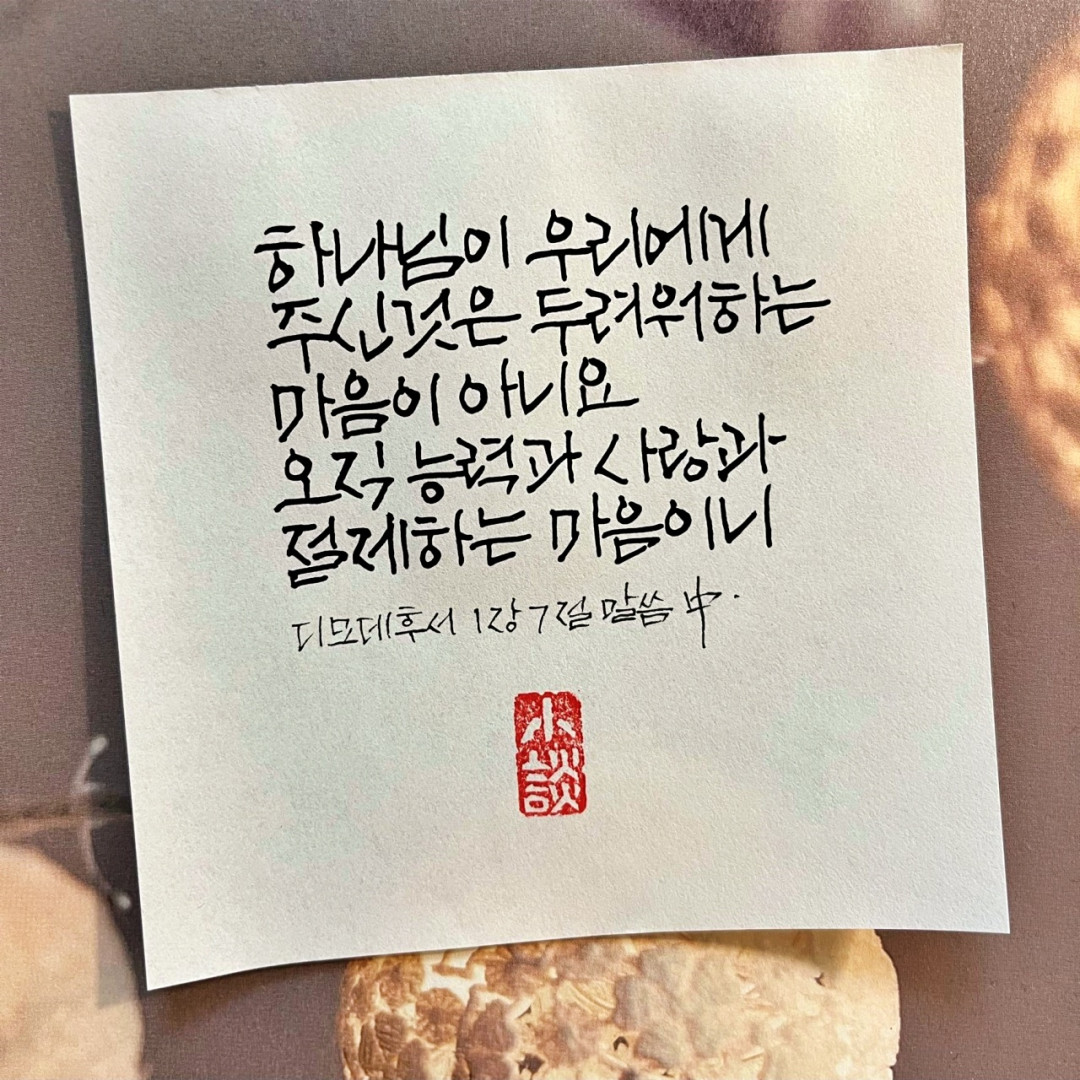 하나님이 우리에게
주신것은 두려워하는
마음이 아니요
오직 능력과 사랑과
절제하는 마음이니
디모데후서 1장 7절 말씀 中.
小
談